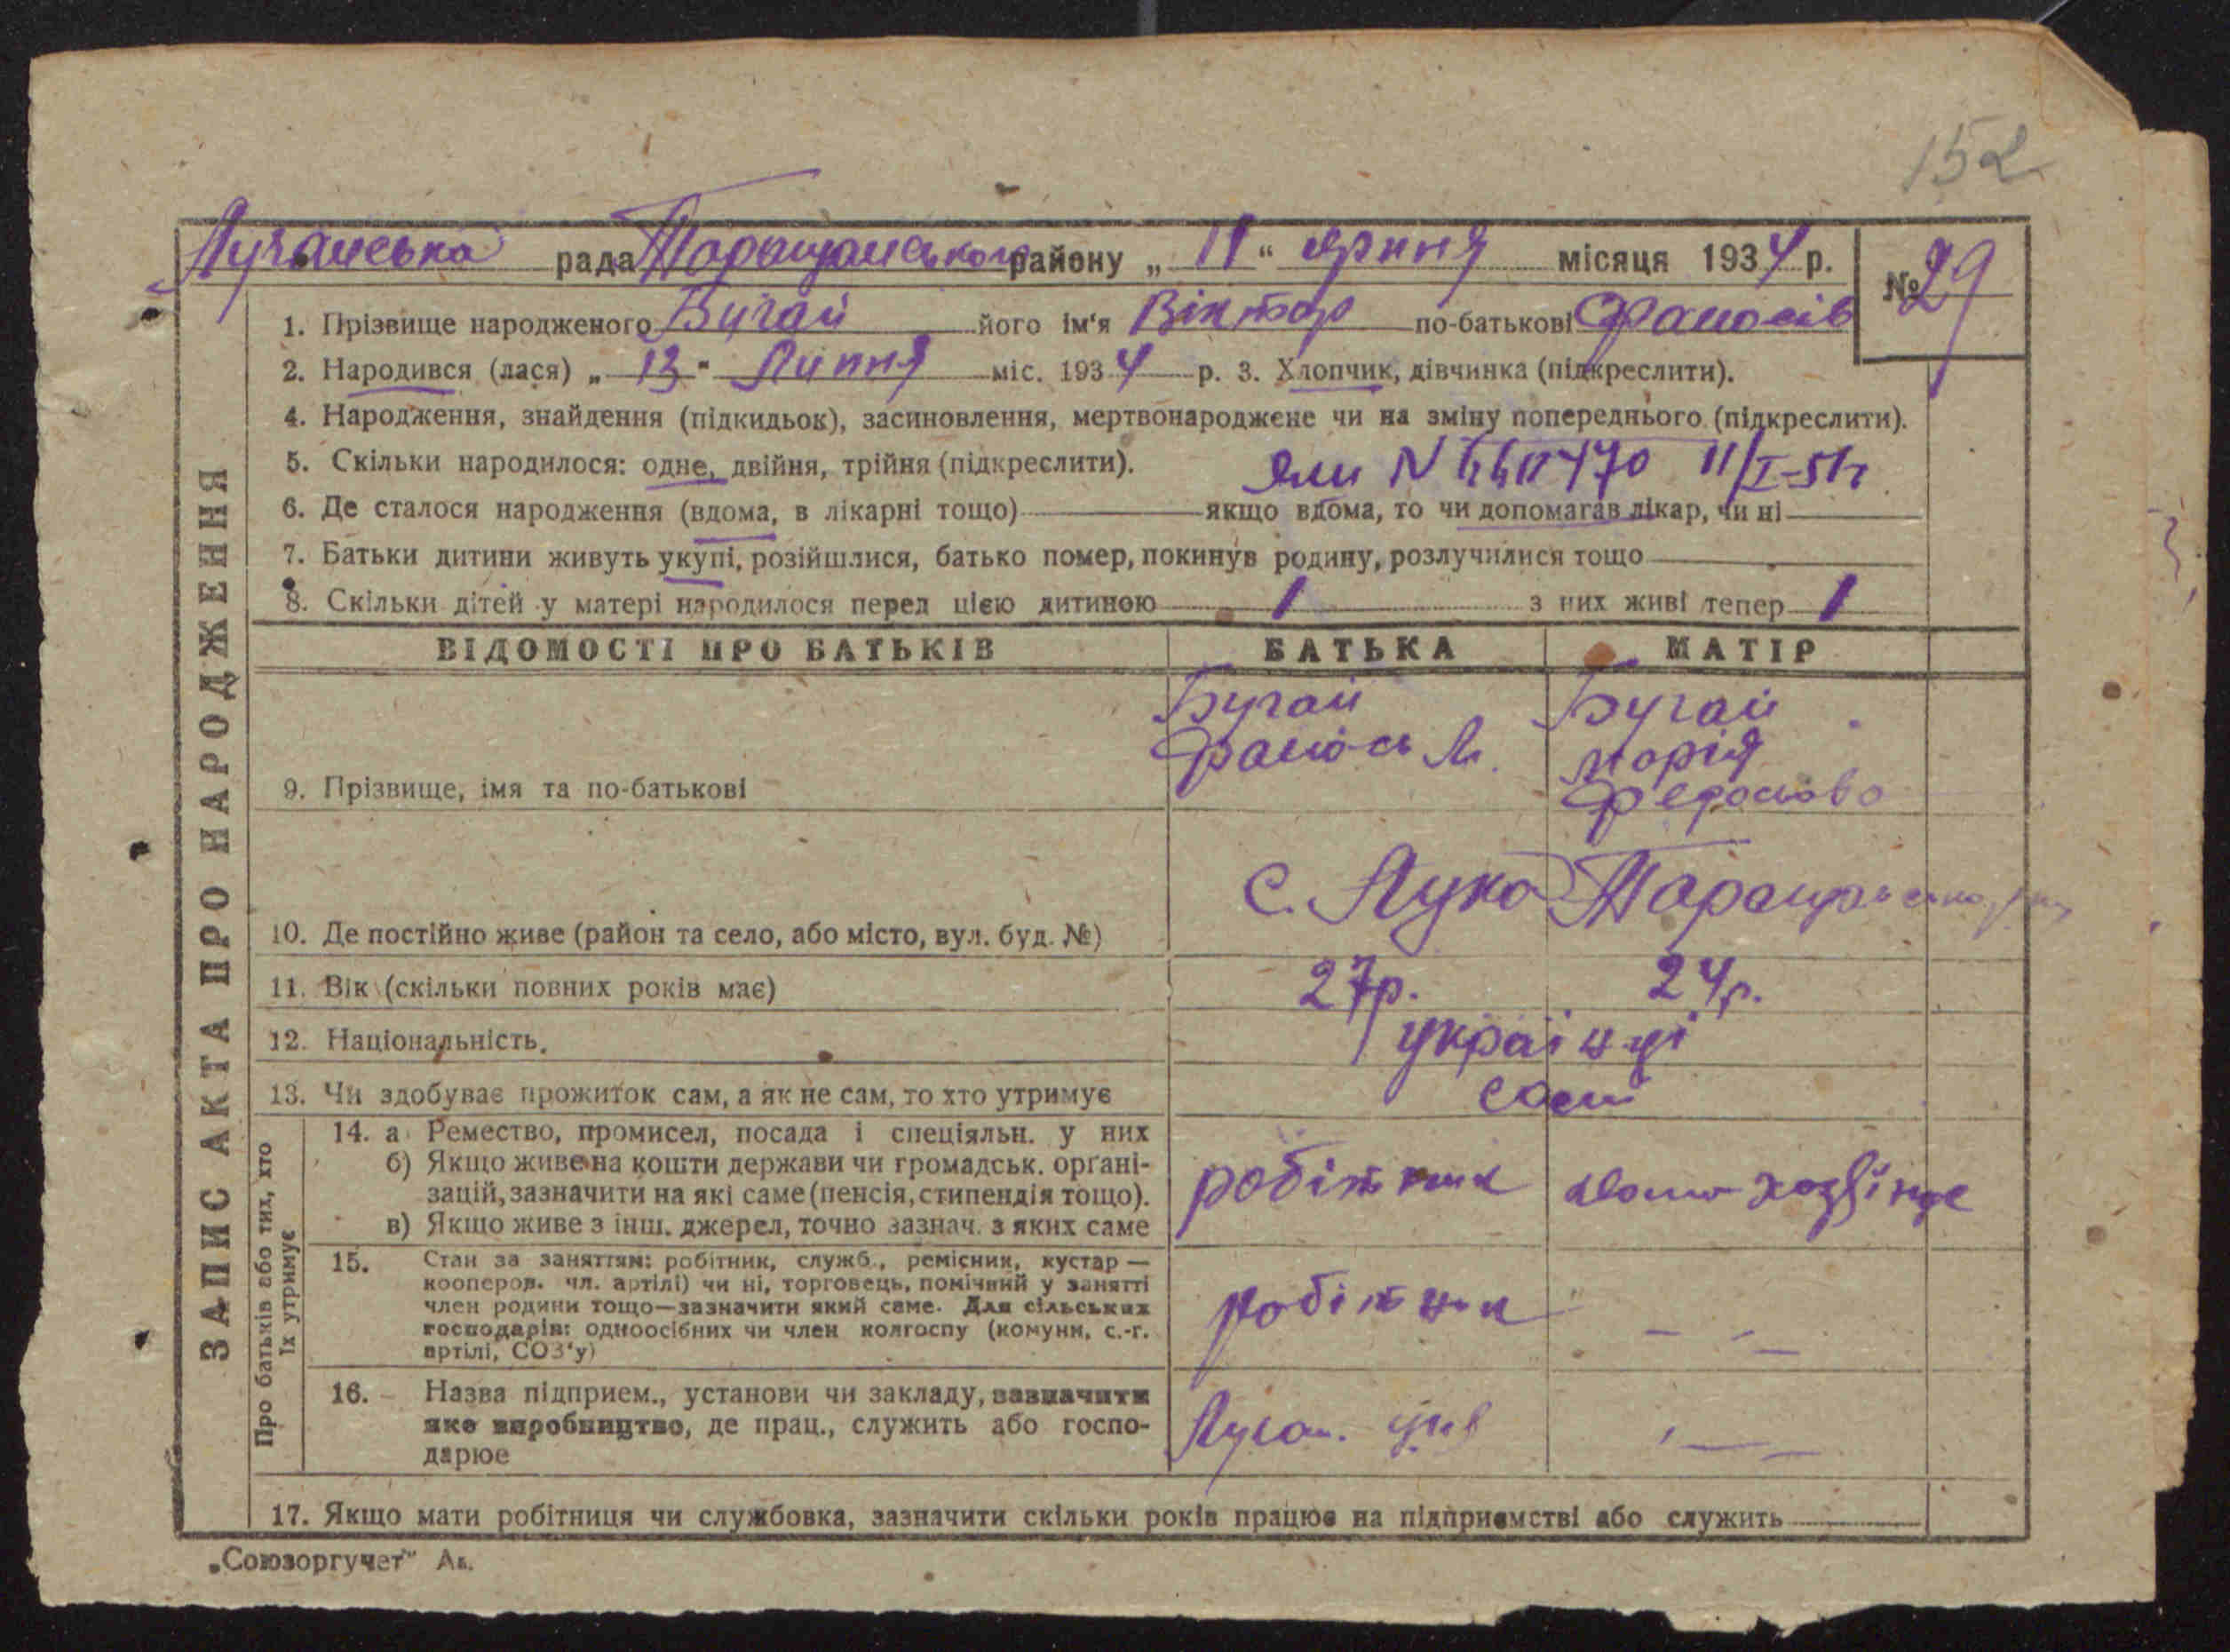 152
Лучанська рада Таращанського району „ 11 “ серпня місяця 1934 р. № 29
1. Прізвище народженого Бугай його ім'я Віктор по-батькові Фанасів
2. Народився (лася) „ 13 " Липня міс. 1934 р. 3. Хлопчик, дівчинка (підкреслити).
4. Народження, знайдення (підкидьок), засиновлення, мертвонароджене чи на зміну попереднього (підкреслити).
5. Скільки народилося: одне, двійня, трійня (підкреслити).
6. Де сталося народження (вдома, в лікарні тощо) якщо вдома, то чи допомагав лікар, чи ні
7. Батьки дитини живуть укупі, розійшлися, батько помер, покинув родину, розлучилися тощо
8. Скільки дітей у матері народилося перед цією дитиною 1 з них живі тепер 1
ВІДОМОСТІ ПРО БАТЬКІВ БАТЬКА МАТІР
Бугай Бугай
Фанась М. Марія
9. Прізвище, імя та по-батькові
с. Лука Таращанськ
10. Де постійно живе (район та село, або місто, вул. буд. №)
11. Вік (скільки повних років має) 27р. 24р.
12. Національність. українці
13. Чи здобуває прожиток сам, а як не сам, то хто утримує сам
14. а Ремество, промисел, посада і спеціяльн. у них
б) Якщо живе на кошти держави чи громадськ. органі-
зацій, зазначити на які саме (пенсія, стипендія тощо). робітник
в) Якщо живе з інш. джерел, точно зазнач. з яких саме
15. Стан за заняттям: робітник, служб., ремісник, кустар —
кооперов. чл. артілі) чи ні, торговець, помічний у занятті
член родини тощо—зазначити який саме. Для сільських
господарів: одноосібних чи член колгоспу (комуни, с.-г. робітник
артілі, СОЗ'у)
16. Назва підприєм., установи чи закладу, зазначити
яке виробництво, де прац., служить або госпо-
дарює
17. Якщо мати робітниця чи службовка, зазначити скільки років працює на підприємстві або служить
ЗАПИС АКТА ПРО НАРОДЖЕННЯ
Про батьків або тих, хто
їх утримує
„Союзоргучет" Ак.